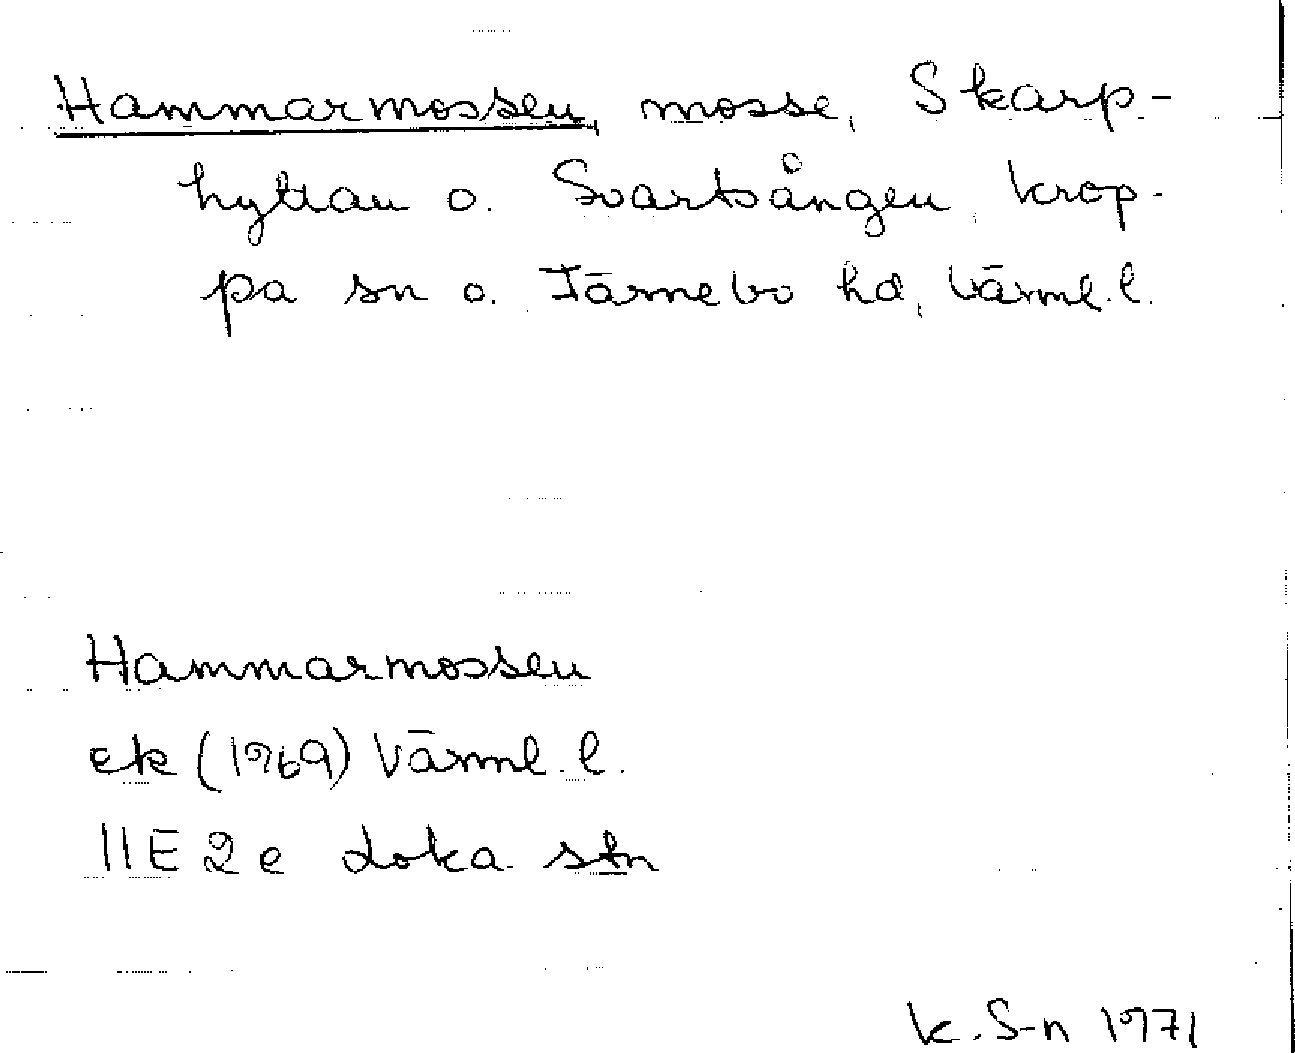 Hammarmossen, mosse, Skarp-
hyttan o. Svartsången, Krop-
pa sn o. Färnebo hd, Värml. l.
Hammarmossen
ek (1969) Värml. l.
11E 2e Loka stn
K. S-n 1971